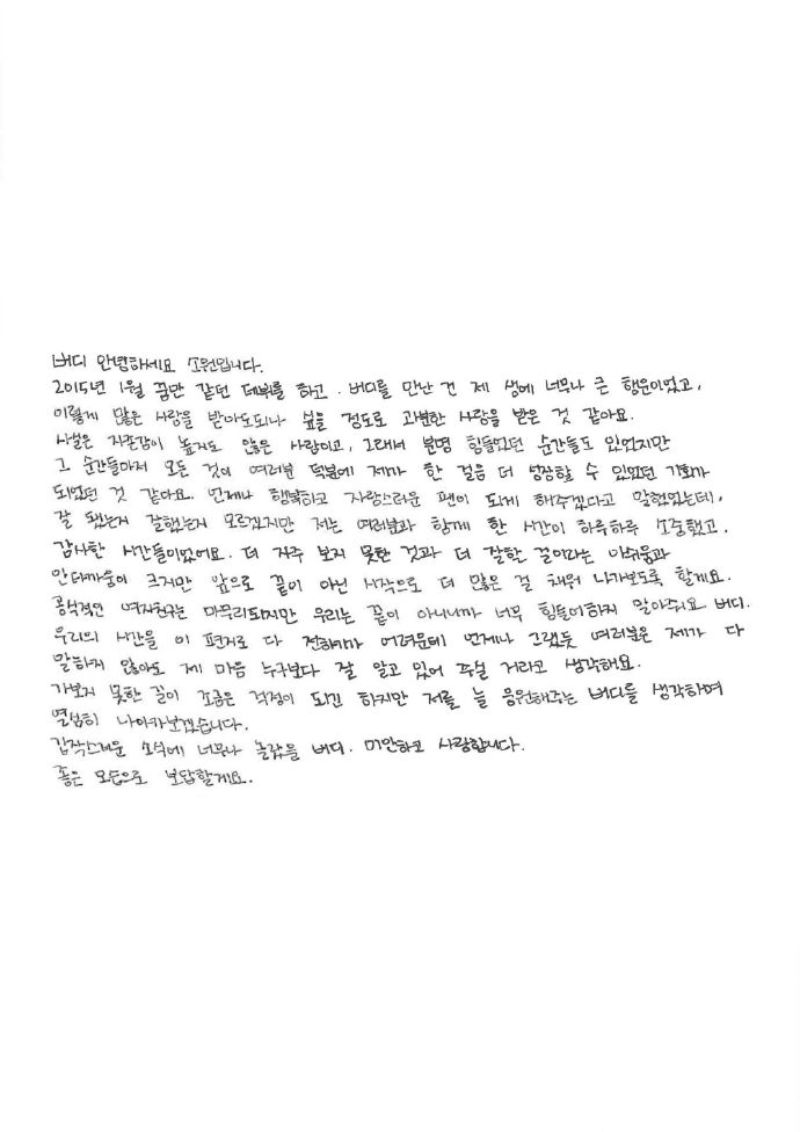 버디 안녕하세요 소원입니다.
2015년 1월 꿈만 같던 데뷔를 하고. 버디를 만난 건 제 생에 너무나 큰 행운이었고,
이렇게 많은 사랑을 받아도되나 싶을 정도로 과분한 사랑을 받은 것 같아요.
사실은 자존감이 높지도 않은 사람이고, 그래서 분명 힘들었던 순간들도 있었지만
그 순간들마저 모든 것이 여러분 덕분에 제가 한 걸음 더 성장할 수 있었던 기회가
되었던 것 같아요. 언제나 행복하고 자랑스러운 팬이 되게 해주겠다고 말했었는데,
잘 됐는지 잘했는지 모르겠지만 저는 여러분과 함께 한 시간이 하루하루 소중했고.
감사한 시간들이었어요. 더 자주 보지 못한 것과 더 잘할 걸이라는 아쉬움과
안타까움이 크지만 앞으로 끝이 아닌 시작으로 더 많은 걸 채워 나가보도록 할게요.
공식적인 여자친구는 마무리되지만 우리는 끝이 아니니까 너무 힘들어하지 말아줘요 버디.
우리의 시간을 이 편지로 다 전하기가 어려운데 언제나 그랬듯 여러분은 제가 다
말하지 않아도 제 마음 누구보다 잘 알고 있어 주실 거라고 생각해요.
가보지 못한 길이 조금은 걱정이 되긴 하지만 저를 늘 응원해주는 버디들 생각하며
열심히 나아가보겠습니다.
갑작스러운 소식에 너무나 놀랐을 버디. 미안하고 사랑합니다.
좋은 모습으로 보답할게요.